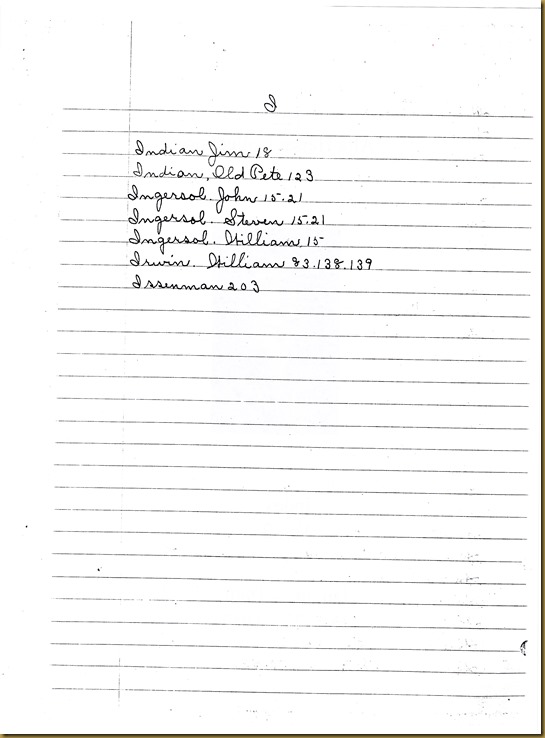 I
Indian Jim 18
Indian, Old Pete 123
Ingersol. John 15.21
Ingersol. Steven 15.21
Ingersol. William 15
Irwin. William 83.138.139
Issenman 203